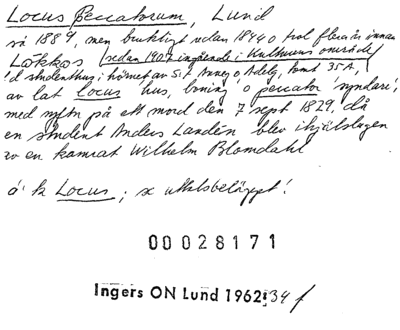 Locus Peccatorum, Lund
så 1884, men brukligt sedan 1840 o trol flera år innan
Lökkos (sedan 1907 ingående i Kulturens område)
'd studenthus i hörnet av S:t Anneg o Adelg, tomt 35A,
av lat locus 'hus, and o peccator 'syndare',
med syftn på ett mord den 7 sept 1829, då
en student Anders Landén blev ihjälslagen
av en kamrat Wilhelm Blomdahl
ä' k Locus; x uttalsbelägget!
00028171
Ingers ON Lund 1962:34 f